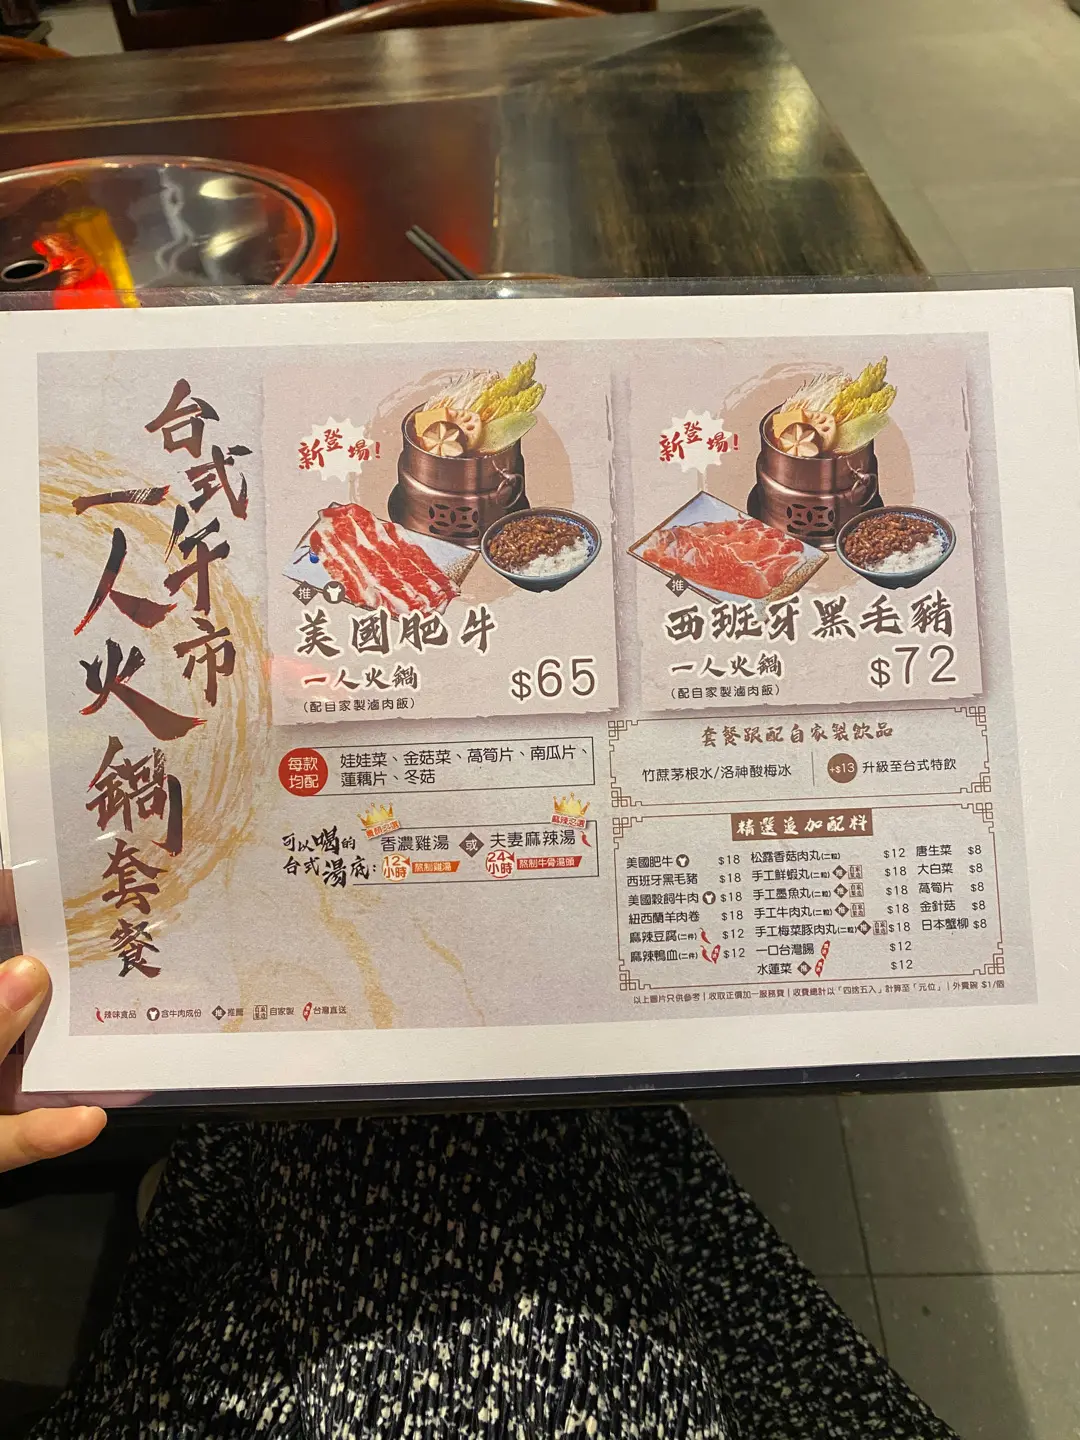 台式午市
一人火鍋套餐
新登場!
推
美國肥牛
一人火鍋
(配自家製滷肉飯)
$65
新登場!
推
西班牙黑毛豬
一人火鍋
(配自家製滷肉飯)
$72
每款
均配
娃娃菜、金菇菜、萵筍片、南瓜片、
蓮藕片、冬菇
可以喝的
台式湯底:
香濃雞湯
12小時
熬制雞湯
或
麻辣之選
夫妻麻辣湯
24小時
熬制牛骨湯頭
套餐跟配自家製飲品
竹蔗茅根水/洛神酸梅冰
+$13 升級至台式特飲
精選追加配料
美國肥牛 $18
西班牙黑毛豬 $18
美國穀飼牛肉 $18
紐西蘭羊肉卷 $18
麻辣豆腐(二件) $12
麻辣鴨血(二件) $12
松露香菇肉丸(二粒) $12
手工鮮蝦丸(二粒) 推 自家製造 $18
手工墨魚丸(二粒) 推 自家製造 $18
手工牛肉丸(二粒) 推 自家製造 $18
手工梅菜豚肉丸(二粒) 推 自家製造 $18
一口台灣腸 $12
水蓮菜 推 $12
唐生菜 $8
大白菜 $8
萵筍片 $8
金針菇 $8
日本蟹柳 $8
以上圖片只供參考 | 收取正價加一服務費 | 收費總計以「四捨五入」計算至「元位」 | 外賣碗 $1/個
辣味食品 含牛肉成份 推 推薦 自家製造 自家製 台灣直送